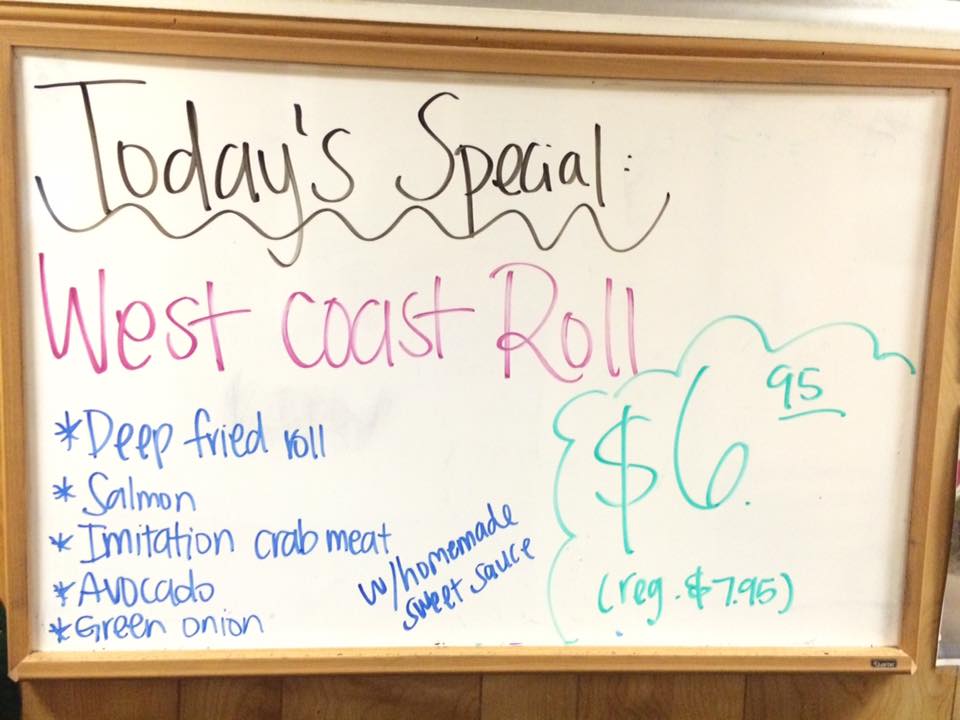 Today's Special:
West coast Roll
* Deep fried roll
* Salmon
* Imitation crab meat
* Avocado
* Green onion
w/homemade
sweet sauce
$6.95
(reg. $7.95)
Quartet